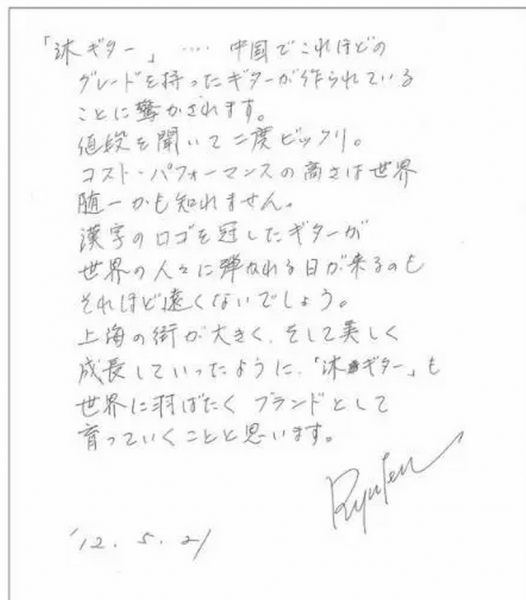 「沐ギター」‥‥ 中国でこれほどの
グレードを持ったギターが作られている
ことに驚かされます。
値段を聞いて二度ビックリ。
コスト・パフォーマンスの高さは世界
随一かも知れません。
漢字のロゴを冠したギターが
世界の人々に弾かれる日が来るのも
それほど遠くないでしょう。
上海の街が大きく、そして美しく
成長していったように、「沐ギター」も
世界に羽ばたくブランドとして
育っていくことと思います。
'12.5.21